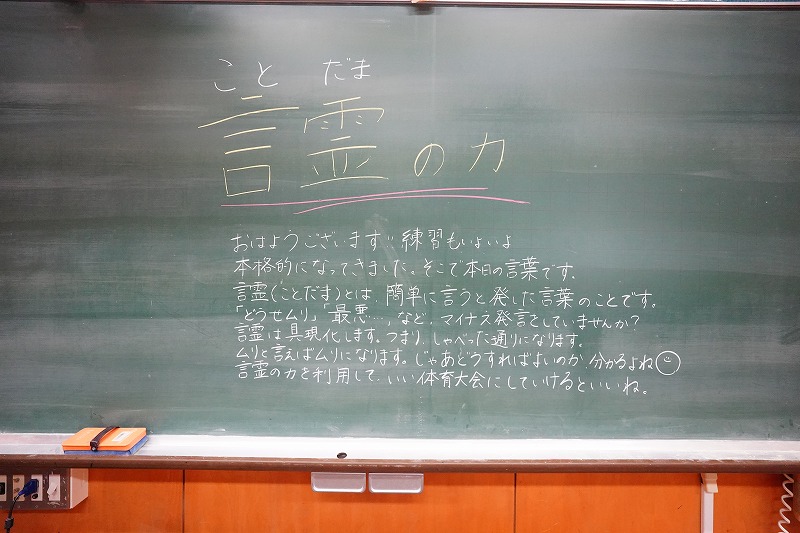 ことだま
言霊の力
おはようございます!!練習もいよいよ
本格的になってきました。そこで本日の言葉です。
言霊(ことだま)とは、簡単に言うと発した言葉のことです。
「どうせムリ」「最悪…」など、マイナス発言をしていませんか?
言霊は具現化します。つまり、しゃべった通りになります。
ムリと言えばムリになります。じゃあどうすればよいのか、分かるよね
言霊の力を利用して、いい体育大会にしていけるといいね。